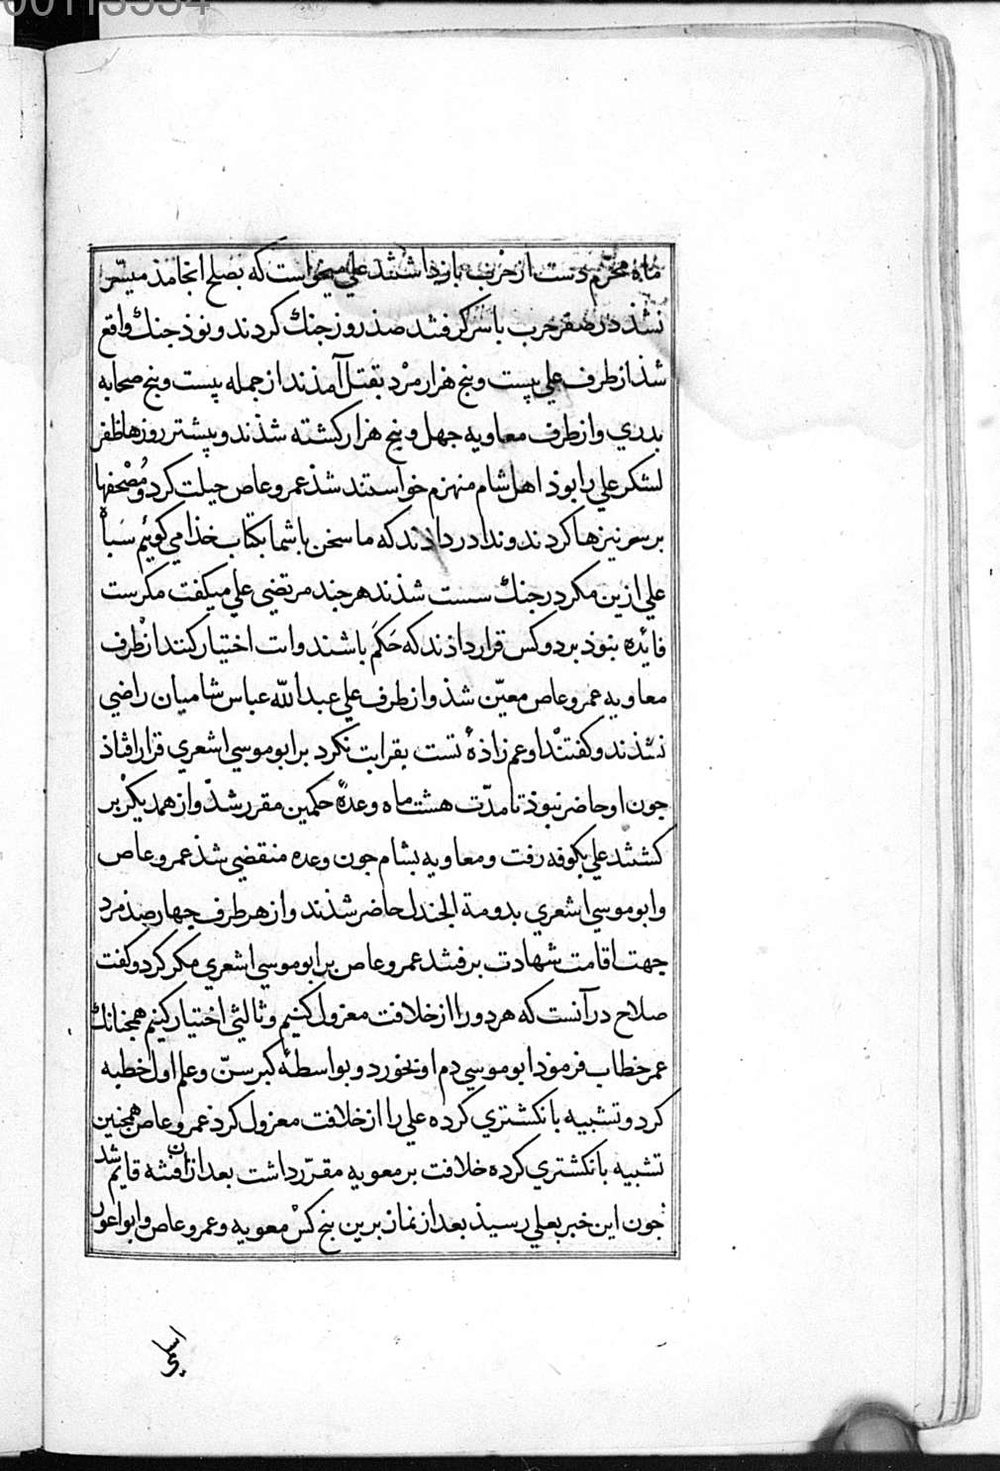 00113554
ماه محرم دست از حرب بازداشتند علی میخواست که بصلح انجامذ میسّر
نشذ در صفر حرب باسر کرفتند صذ روز جنك کردند و نوذ جنك واقع
شذ از طرف علی بیست و پنج هزار مرد بقتل آمذند از جمله بیست و پنج صحابه
بدری و از طرف معاویه جهل و پنج هزار کشته شذند و پیشتر روزها ظفر
لشکر علی را بوذ اهل شام منهزم خواستند شذ عمرو عاص حیلت کرد و مُصْحفها
بر سر نیزها کردند و ندا در دادند که ما سخن با شما بکتاب خذا می کوئیم سباه
علی ازین مکر در جنك سست شذند هر جند مرتضی علی میکفت مکرست
فائده نبوذ بر دو کس قرار داذند که حَکَم باشند و امت اختیار کنند از طرف
معاویه عمرو عاص معیّن شذ و از طرف علی عبدالله عباس شامیان راضی
نشذند و کفتند او عم زاذهٔ تست بقرابت نکرد بر ابو موسی اشعری قرار افتاذ
جون او حاضر نبوذ تا مدّت هشت ماه وعدهٔ حکمین مقرر شذ و از همدیکر بر
کشتند علی بکوفه رفت و معاویه بشام جون وعده منقضی شذ عمرو عاص
و ابو موسی اشعری بدومة الجندل حاضر شذند و از هر طرف جهار صذ مرد
جهت اقامت شهادت برفتند عمرو عاص بر ابو موسی اشعری مکر کرد و کفت
صلاح در آنست که هر دو را از خلافت معزول کنیم و ثالثی اختیار کنیم همجنانك
عمر خطاب فرموذ ابو موسی دم او نخورد و بواسطهٔ کبر سنّ و علم اول خطبه
کرد و تشبیه بانکشتری کرده علی را از خلافت معزول کرد عمرو عاص همجنین
تشبیه بانکشتری کرده خلافت بر معویه مقرّر داشت بعد از ان فتنه قایم شد
جون این خبر بعلی رسیذ بعد از نماز برین پنج کس معویه و عمرو عاص و ابو اعور
اسلمی